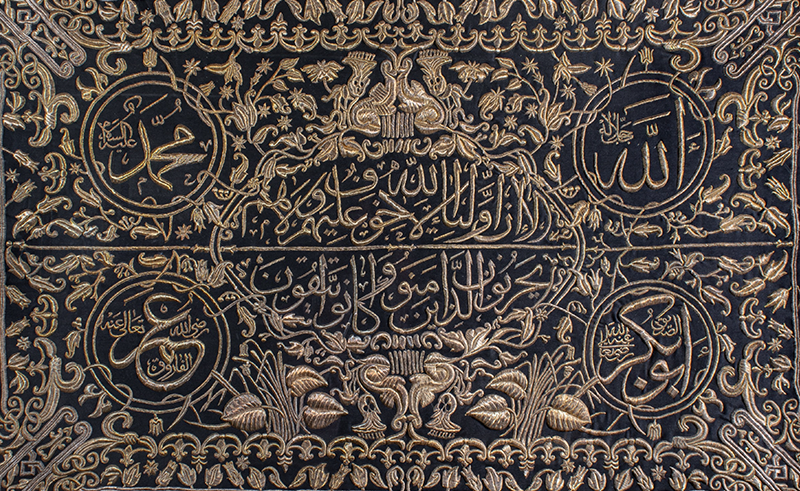 الله جل جلاله
محمد عليه السلام
الا ان اولياء الله لا خوف عليهم ولا هم
يحزنون الذين امنوا وكانوا يتقون
ابو بكر الصديق رضي الله عنه
عمر الفاروق رضي الله تعالى عنه